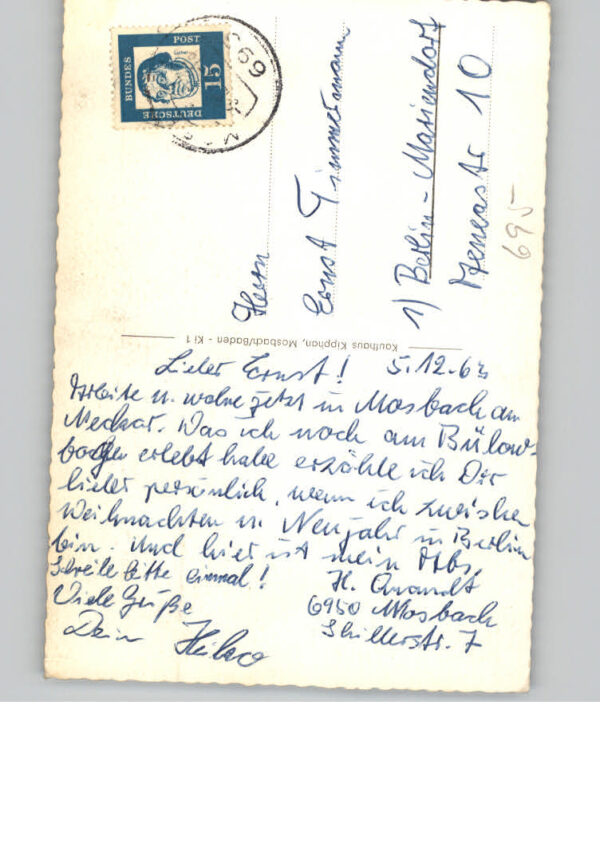 DEUTSCHE
BUNDES
POST
15
69
Herrn
Ernst Timmermann
1) Berlin - Mariendorf
str 10
695
Kaufhaus Kipphan, Mosbach/Baden - Ki 1
Lieber Ernst! 5.12.63
Arbeite u. wohne jetzt in Mosbach am
Neckar. Was ich noch am Bülow-
bogen erlebt habe erzähle ich Dir
lieber persönlich, wenn ich zwischen
Weihnachten u. Neujahr in Berlin
bin. Und hier ist mein Abs.
Schreibe bitte einmal! H. Quandt
Viele Grüße 6950 Mosbach
Dein Heiko Schillerstr. 7